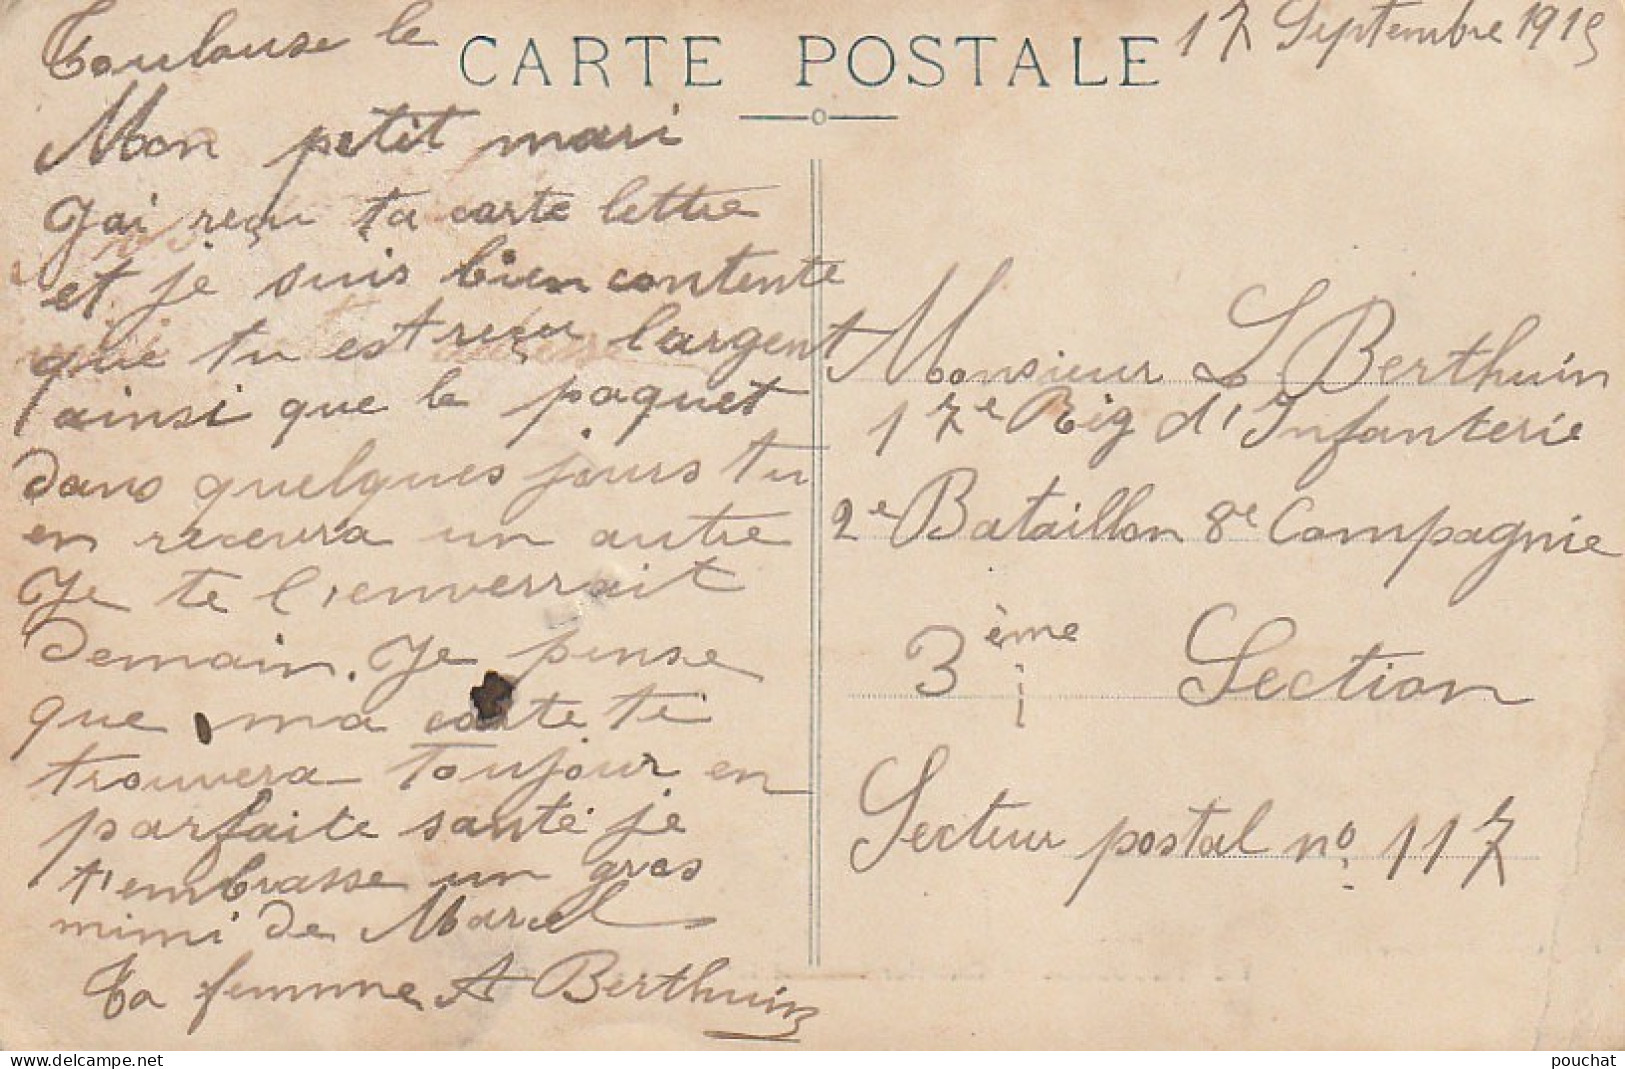 Toulouse le 17 Septembre 1915
CARTE POSTALE
Mon petit mari
J'ai reçu ta carte lettre
et je suis bien contente
que tu est reçu l'argent
ainsi que le paquet
dans quelques jours tu
en recevra un autre
Je te l'enverrait
demain. Je pense
que ma carte te
trouvera toujour en
parfaite santé je
t'embrasse un gros
mimi de Marcel
Ta femme A Berthuin
Monsieur L Berthuin
17e Rég d'Infanterie
2e Bataillon 8e Compagnie
3ème Section
Secteur postal no 117
pouchat